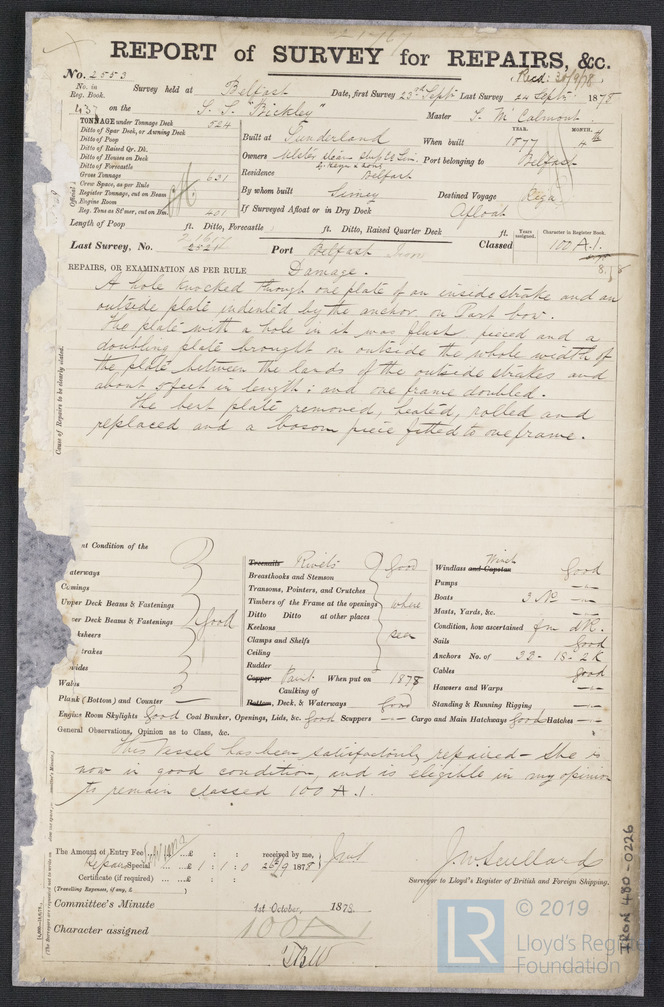 REPORT of SURVEY for REPAIRS, &c.
No. 2553
Recd: 30/9/78
No. in Reg. Book. Survey held at Belfast Date, first Survey 23rd Septr Last Survey 24 Septr 1878
437 on the S. S. "Bickley" Master T. McCalmont
TONNAGE under Tonnage Deck 524
Ditto of Spar Deck, or Awning Deck
Ditto of Poop
Ditto of Raised Qr. Dk.
Ditto of Houses on Deck
Ditto of Forecastle
Gross Tonnage 631
Crew Space, as per Rule
Register Tonnage, cut on Beam
Engine Room
Reg. Tons as St'mer, cut on Bm. 401
Built at Sunderland When built YEAR. 1877 MONTH. 4th
Owners Ulster Steam Ship Co Lim. Port belonging to Belfast
Residence Belfast
By whom built Destined Voyage Riga
If Surveyed Afloat or in Dry Dock Afloat
Length of Poop ft. Ditto, Forecastle ft. Ditto, Raised Quarter Deck ft.
Years assigned. Character in Register Book.
Last Survey, No. 2524 Port Belfast Iron Classed 100 A.1.
8.78
REPAIRS, OR EXAMINATION AS PER RULE Damage.
Cause of Repairs to be clearly stated.
A hole knocked through one plate of an inside strake and an
outside plate indented by the anchor on Port bow.
The plate with a hole in it was flush pieced and a
doubling plate brought on outside the whole width of
the plate between the lands of the outside strakes and
about 5 feet in length: and one frame doubled.
The bent plate removed, heated, rolled and
replaced and a bosom piece fitted to one frame.
nt Condition of the
aterways
Comings
Upper Deck Beams & Fastenings
er Deck Beams & Fastenings Good
ksheers
trakes
Wales
Plank (Bottom) and Counter —
Treenails Rivets Good
Breasthooks and Stemson
Transoms, Pointers, and Crutches
Timbers of the Frame at the openings where
Ditto Ditto at other places
Keelsons seen
Clamps and Shelfs
Ceiling
Rudder
Copper Paint When put on 1878
Caulking of
Bottom, Deck, & Waterways Good
Windlass and Capstan Winch Good
Pumps —
Boats 3 No —
Masts, Yards, &c. —
Condition, how ascertained fm dk.
Sails Good
Anchors No. of 3B - 1S - 2K
Cables Good
Hawsers and Warps —
Standing & Running Rigging —
Engine Room Skylights Good Coal Bunker, Openings, Lids, &c. Good Scuppers — Cargo and Main Hatchways Good Hatches —
General Observations, Opinion as to Class, &c.
This Vessel has been satisfactorily repaired – she is
now in good condition, and is eligible in my opinion
to remain classed 100 A.1.
The Amount of Entry Fee ... £ : : received by me,
Repair Special ... £ 1 : 1 : 0 26/9 1878
Certificate (if required) ... £ : :
(Travelling Expenses, if any, £ )
Surveyor to Lloyd's Register of British and Foreign Shipping.
Committee's Minute 1st October, 1878.
Character assigned 100 A 1
IRON 480-0226
LR © 2019
Lloyd's Register
Foundation